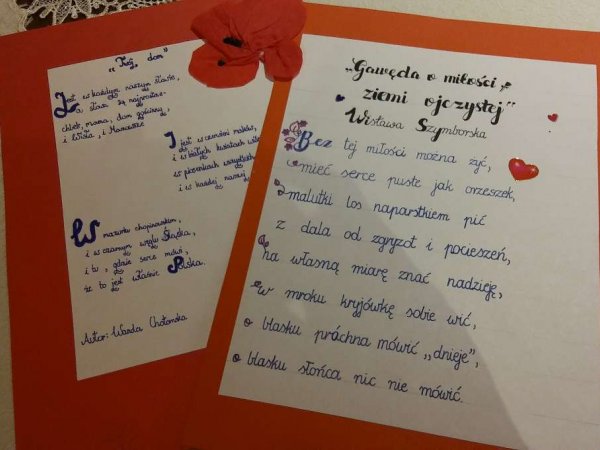 „Twój dom”
Jest w każdym naszym słowie,
a słowa są najprostsze-
chleb, mama, dom gościnny,
i Wisła, i Mazowsze
I jest w czerwieni maków,
i w białych kwiatach wiśni
w piosenkach wszystkich
i w każdej naszej
W mazurku chopinowskim,
i w czarnym węglu Śląska,
i tu, gdzie serce mówi,
że to jest właśnie Polska.
Autor: Wanda Chotomska
„Gawęda o miłości
ziemi ojczystej”
Wisława Szymborska
Bez tej miłości można żyć,
mieć serce puste jak orzeszek,
malutki los naparstkiem pić
z dala od zgryzot i pocieszeń,
na własną miarę znać nadzieję,
w mroku kryjówkę sobie wić,
o blasku próchna mówić „dnieje”,
o blasku słońca nic nie mówić.